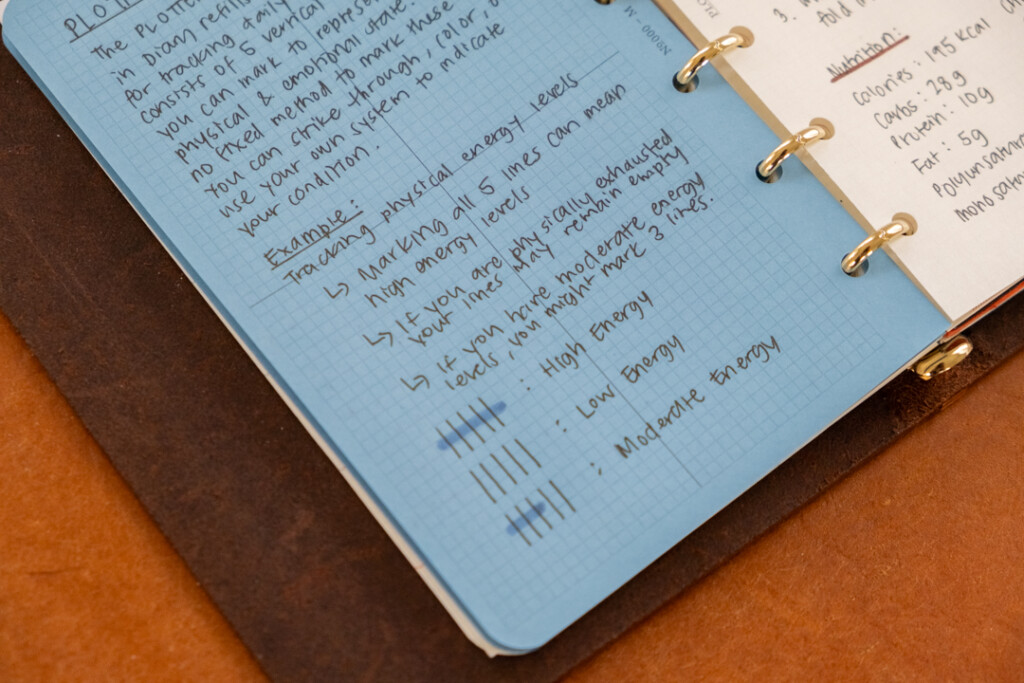 PLOTTER
The PLOTTER
in Diary refills
for tracking daily
consists of 5 vertical
you can mark to represent
physical & emotional state.
no fixed method to mark these
you can strike through, color, or
use your own system to indicate
your condition.
Example:
Tracking physical energy levels
↳ Marking all 5 lines can mean
high energy levels
↳ If you are physically exhausted
your lines may remain empty
↳ If you have moderate energy
levels, you might mark 3 lines.
: High Energy
: Low Energy
: Moderate Energy
No000-M
3.
fold in
Nutrition:
Calories: 195 Kcal
Carbs: 28g
Protein: 10g
Fat: 5g